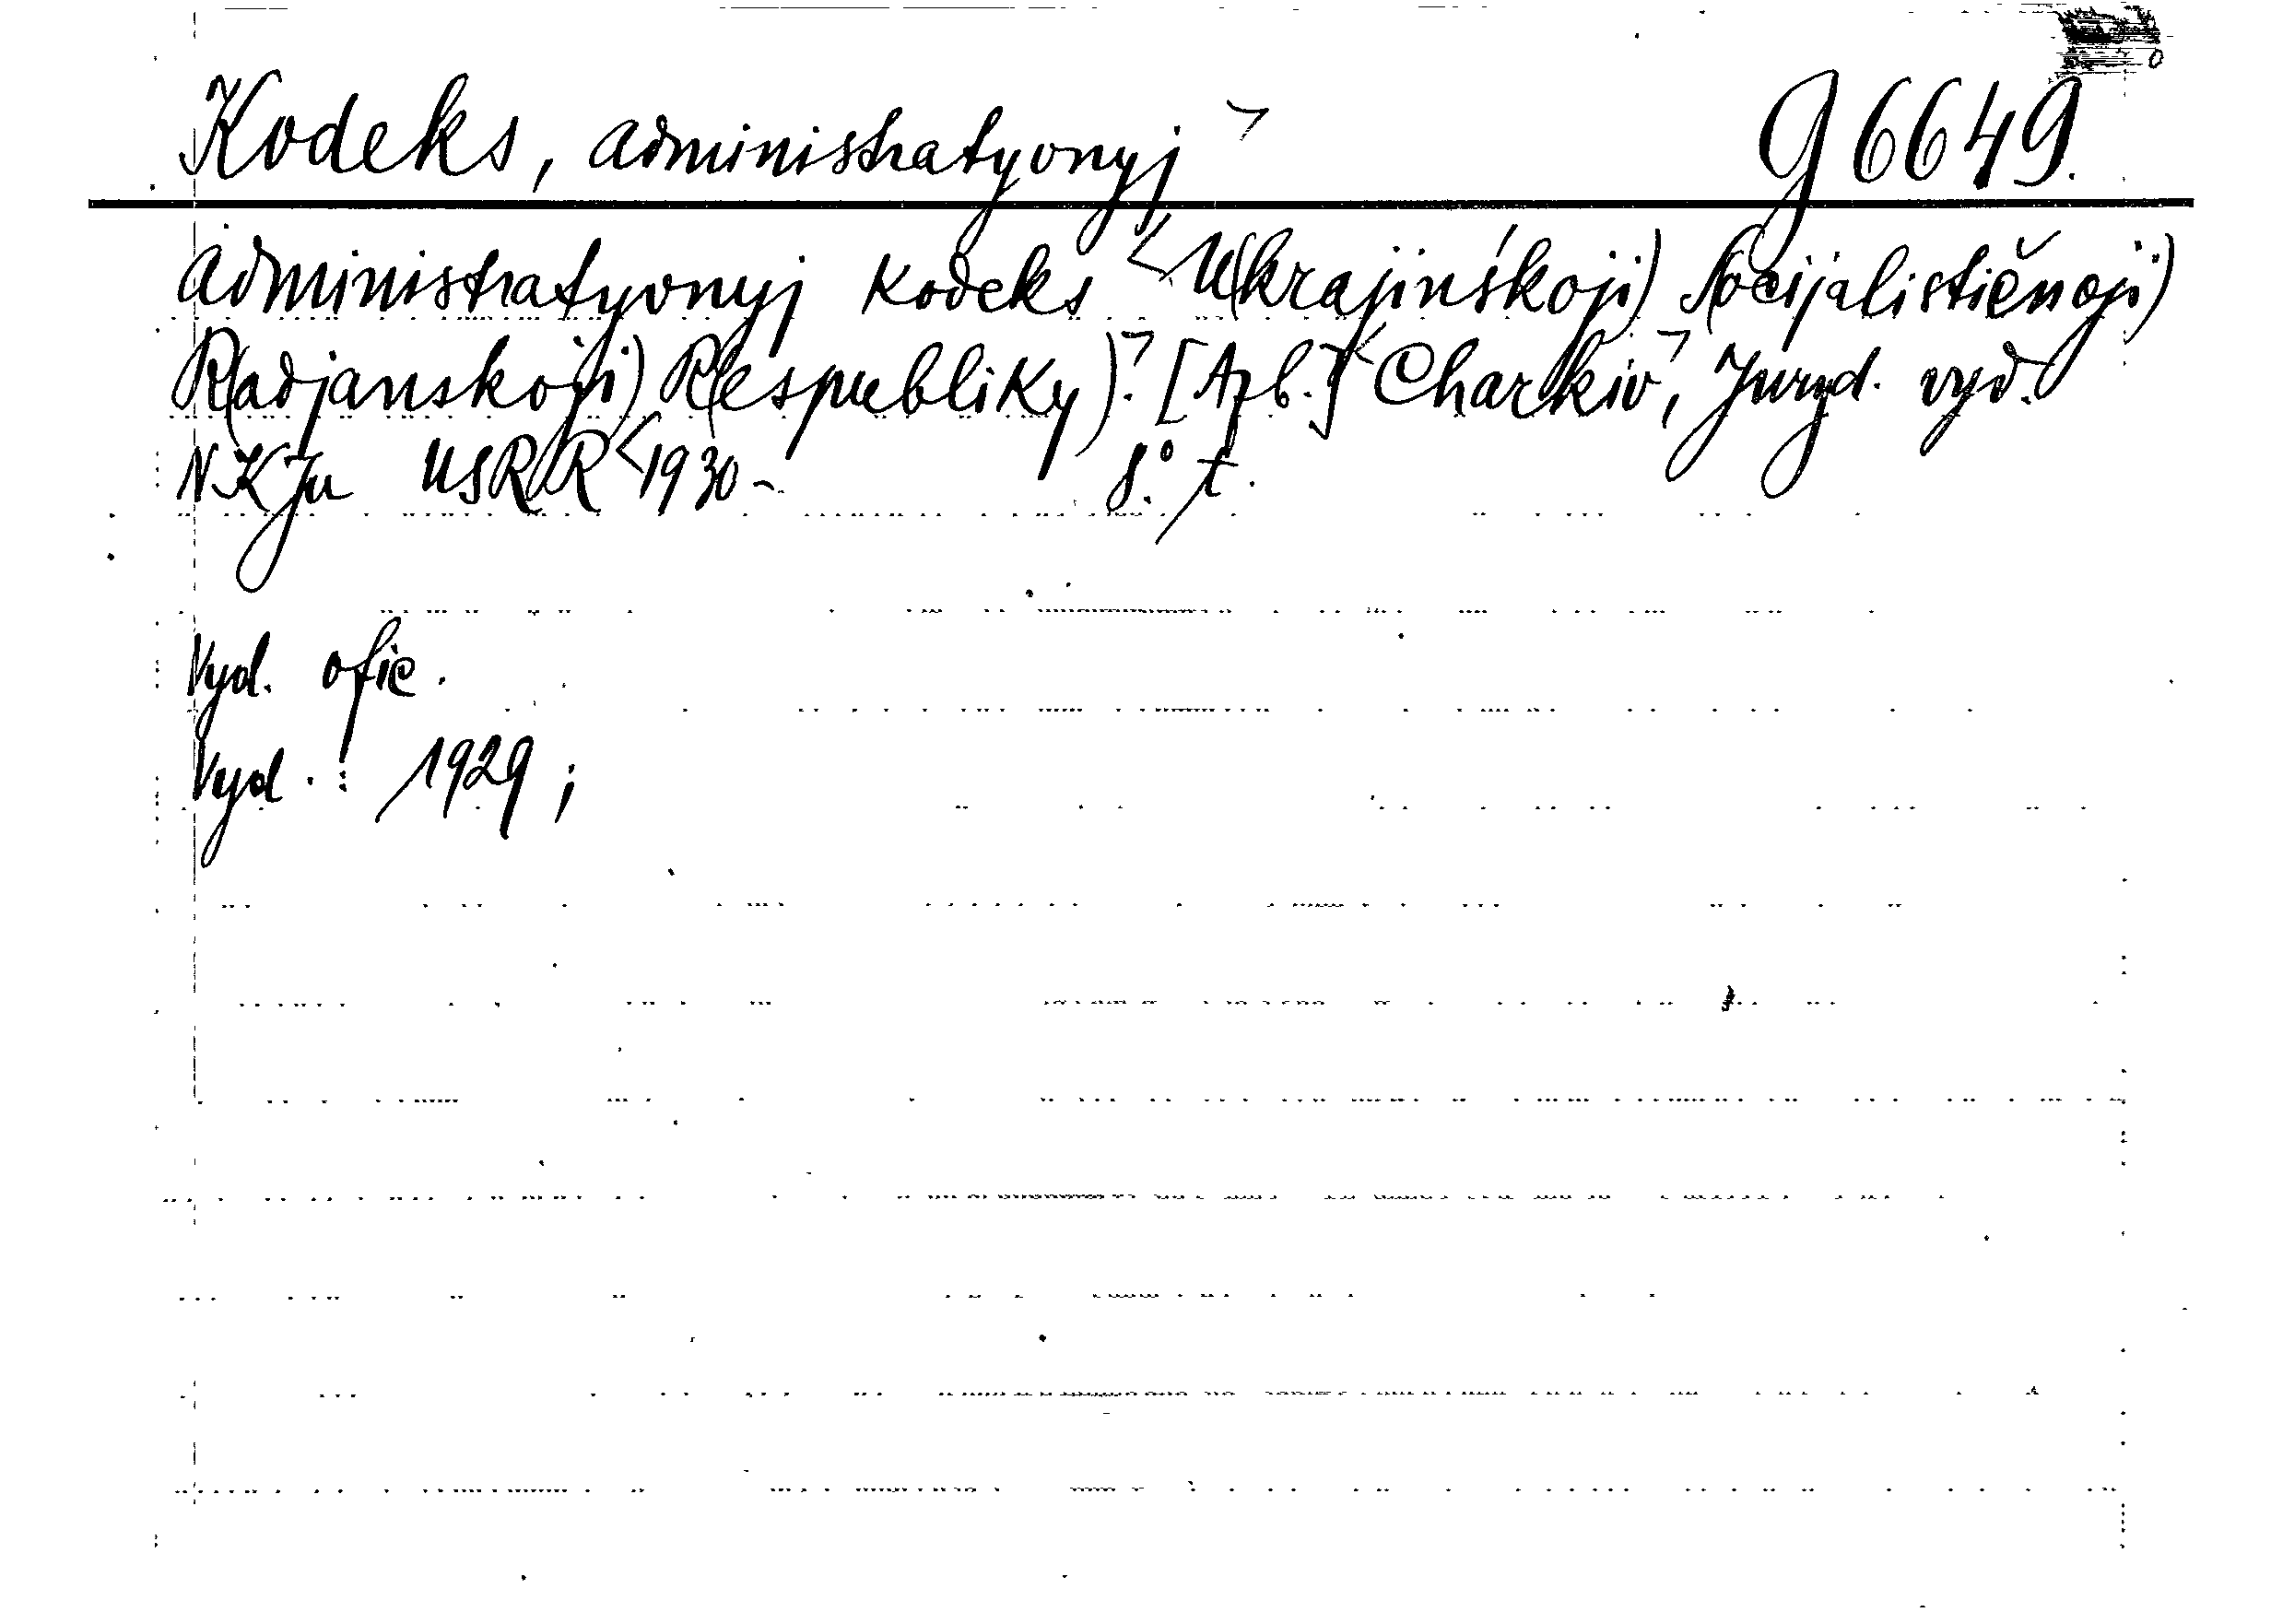 Kodeks, administratyvnyj ˃ G 6649.
Administratyvnyj kodeks <U(krajinśkoji) S(ocijalističnoji)
R(adjanskoji) R(espubliky).> [Azb.] <Charkiv>, Juryd. vyd.
NKJu USRR <1930- 8.° t.
Vyd. ofic.
Vyd.: 1929;